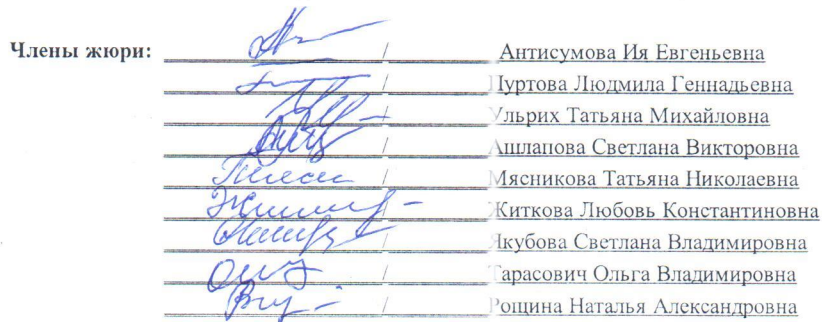 Члены жюри: / Антисумова Ия Евгеньевна
/ Цуртова Людмила Геннадьевна
/ Ульрих Татьяна Михайловна
/ Ашлапова Светлана Викторовна
/ Мясникова Татьяна Николаевна
/ Житкова Любовь Константиновна
/ Якубова Светлана Владимировна
/ Тарасович Ольга Владимировна
/ Рощина Наталья Александровна